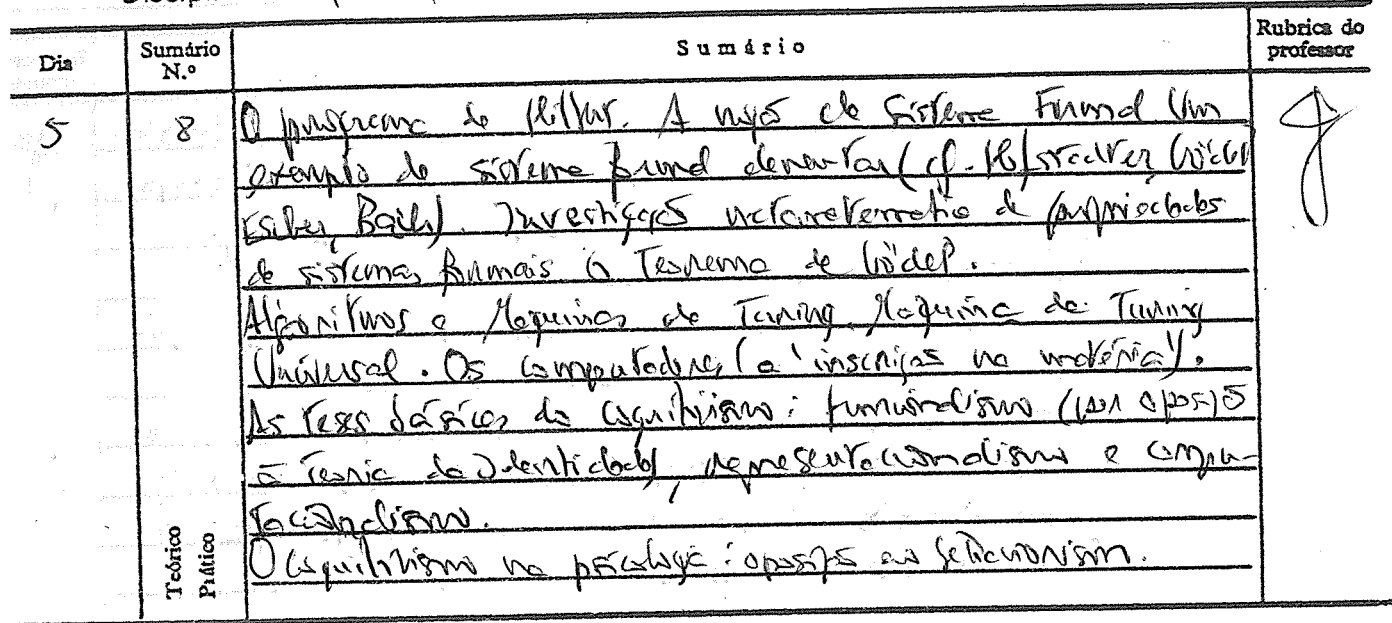 Dia
Sumário N.º
Sumário
Rubrica do professor
5
8
O programa de Hilbert. A noção de Sistema Formal Um
exemplo de sistema formal elementar (cf. Hofstadter, Gödel
Escher, Bach). Investigação metamatemática de propriedades
de sistemas formais o Teorema de Gödel.
Algoritmos e Máquinas de Turing. Máquina de Turing
Universal. Os computadores (a 'inscrição na matéria').
As teses básicas do cognitivismo: funcionalismo (por oposição
à Teoria da Identidade), representacionalismo e compu-
tacionalismo.
O cognitivismo na psicologia: oposição ao behaviorism.
Teórico
Prático